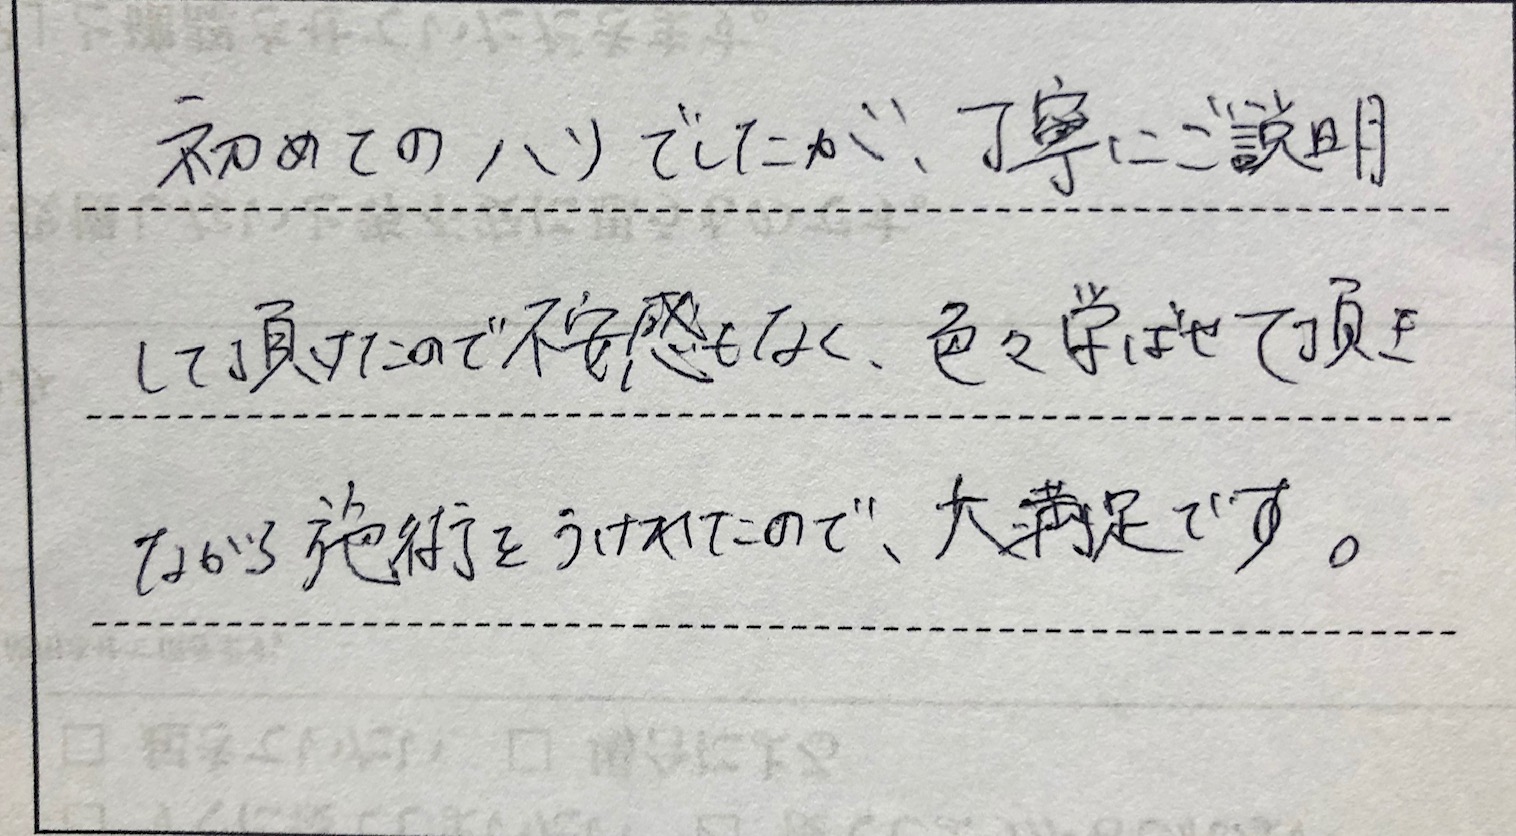 初めてのハリでしたが、丁寧にご説明
して頂けたので不安感もなく、色々学ばせて頂き
ながら施術をうけれてたので、大満足です。